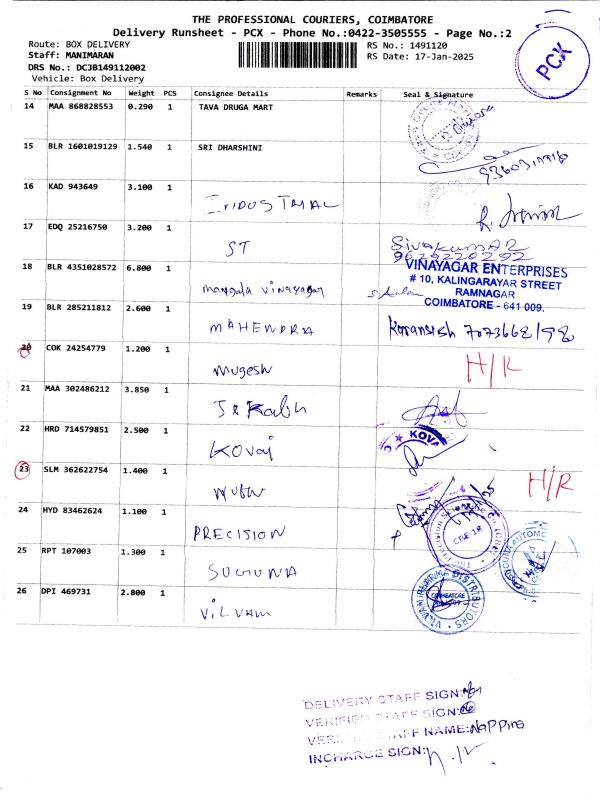 THE PROFESSIONAL COURIERS, COIMBATORE
Delivery Runsheet - PCX - Phone No.:0422-3505555 - Page No.:2
Route: BOX DELIVERY
Staff: MANIMARAN
DRS No.: DCJB1491112002
Vehicle: Box Delivery
RS No.: 1491120
RS Date: 17-Jan-2025
PCX
S No Consignment No Weight PCS Consignee Details Remarks Seal & Signature
14 MAA 868828553 0.290 1 TAVA DRUGA MART
15 BLR 1601019129 1.540 1 SRI DHARSHINI
16 KAD 943649 3.100 1 INDUSTRIAL
17 EDQ 25216750 3.200 1 ST SIVAKUMAR
9629220292
18 BLR 4351028572 6.800 1 mangala vinayagar
VINAYAGAR ENTERPRISES
# 10, KALINGARAYAR STREET
RAMNAGAR
COIMBATORE - 641 009.
19 BLR 285211812 2.600 1 MAHENDRA
20 COK 24254779 1.200 1 Mugesh H/R
21 MAA 302486212 3.850 1
22 HRD 714579851 2.500 1 KOVAI KOVA
23 SLM 362622754 1.400 1 H/R
24 HYD 83462624 1.100 1 PRECISION
25 RPT 107003 1.300 1 SUGUNA
26 DPI 469731 2.800 1 VILVAM
DISTRIBUTORS
COIMBATORE
DELIVERY STAFF SIGN:
VERIFIED STAFF SIGN:
STAFF NAME:
INCHARGE SIGN: